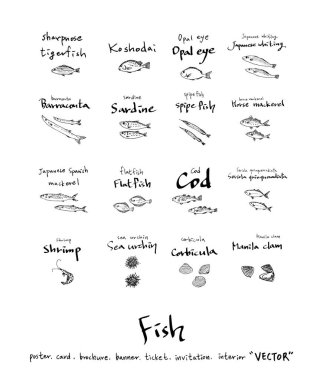 sharpnose
tigerfish
Koshodai
Opal eye
Opal eye
Japanese whiting
Japanese whiting
barracuta
Barracouta
sardine
Sardine
spipe fish
spipe fish
Horse mackerel
Japanese Spanish
mackerel
flatfish
Flatfish
Cod
Cod
Shrimp
Shrimp
sea urchin
Sea urchin
corbicula
Corbicula
Manila clam
Manila clam
Fish
poster. card. brochure. banner. ticket. invitation. interior "VECTOR"